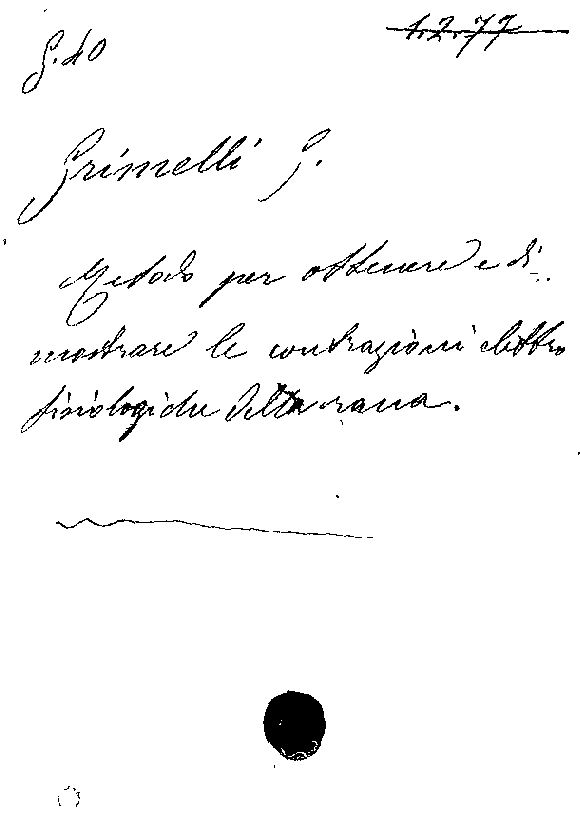 1.2.77
G. 40
Grimelli G.
Metodo per ottenere e di-
mostrare le contrazioni elettro
fisiologiche della rana.